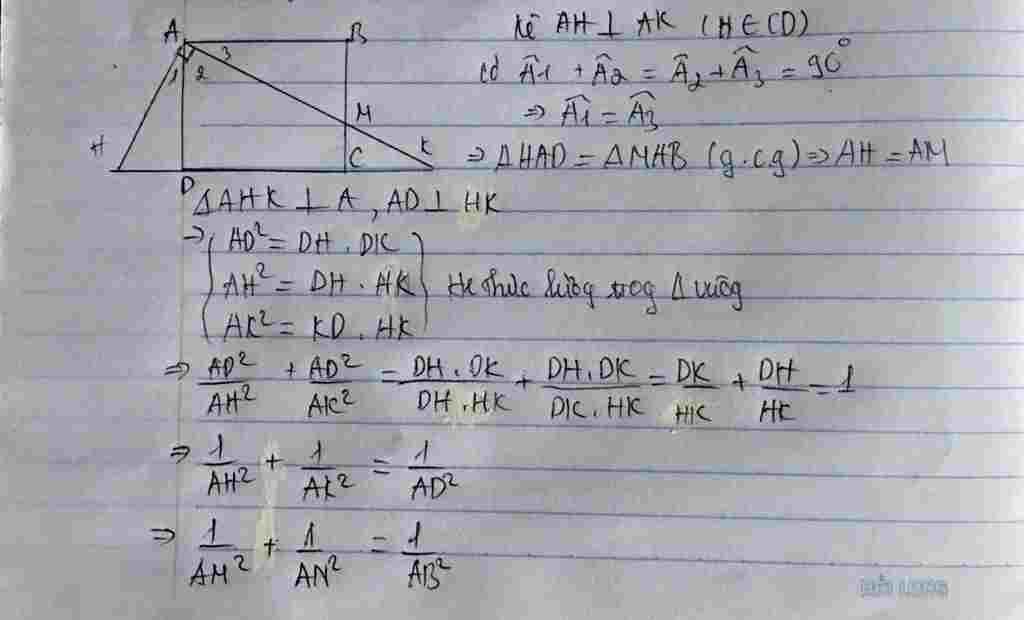 A B
1 2 3
M
H C K
D
Kẻ AH ⊥ AK (H ∈ CD)
có Â1 + Â2 = Â2 + Â3 = 90°
⇒ Â1 = Â3
⇒ ΔHAD = ΔMAB (g.cg) ⇒ AH = AM
ΔAHK ⊥ A, AD ⊥ HK
⇒ AD² = DH . DK
AH² = DH . HK Hệ thức lượng trog Δ vuôg
AK² = KD . HK
⇒ AD²/AH² + AD²/AK² = DH . DK/DH . HK + DH . DK/DK . HK = DK/HK + DH/HK = 1
⇒ 1/AH² + 1/AK² = 1/AD²
⇒ 1/AM² + 1/AN² = 1/AB²